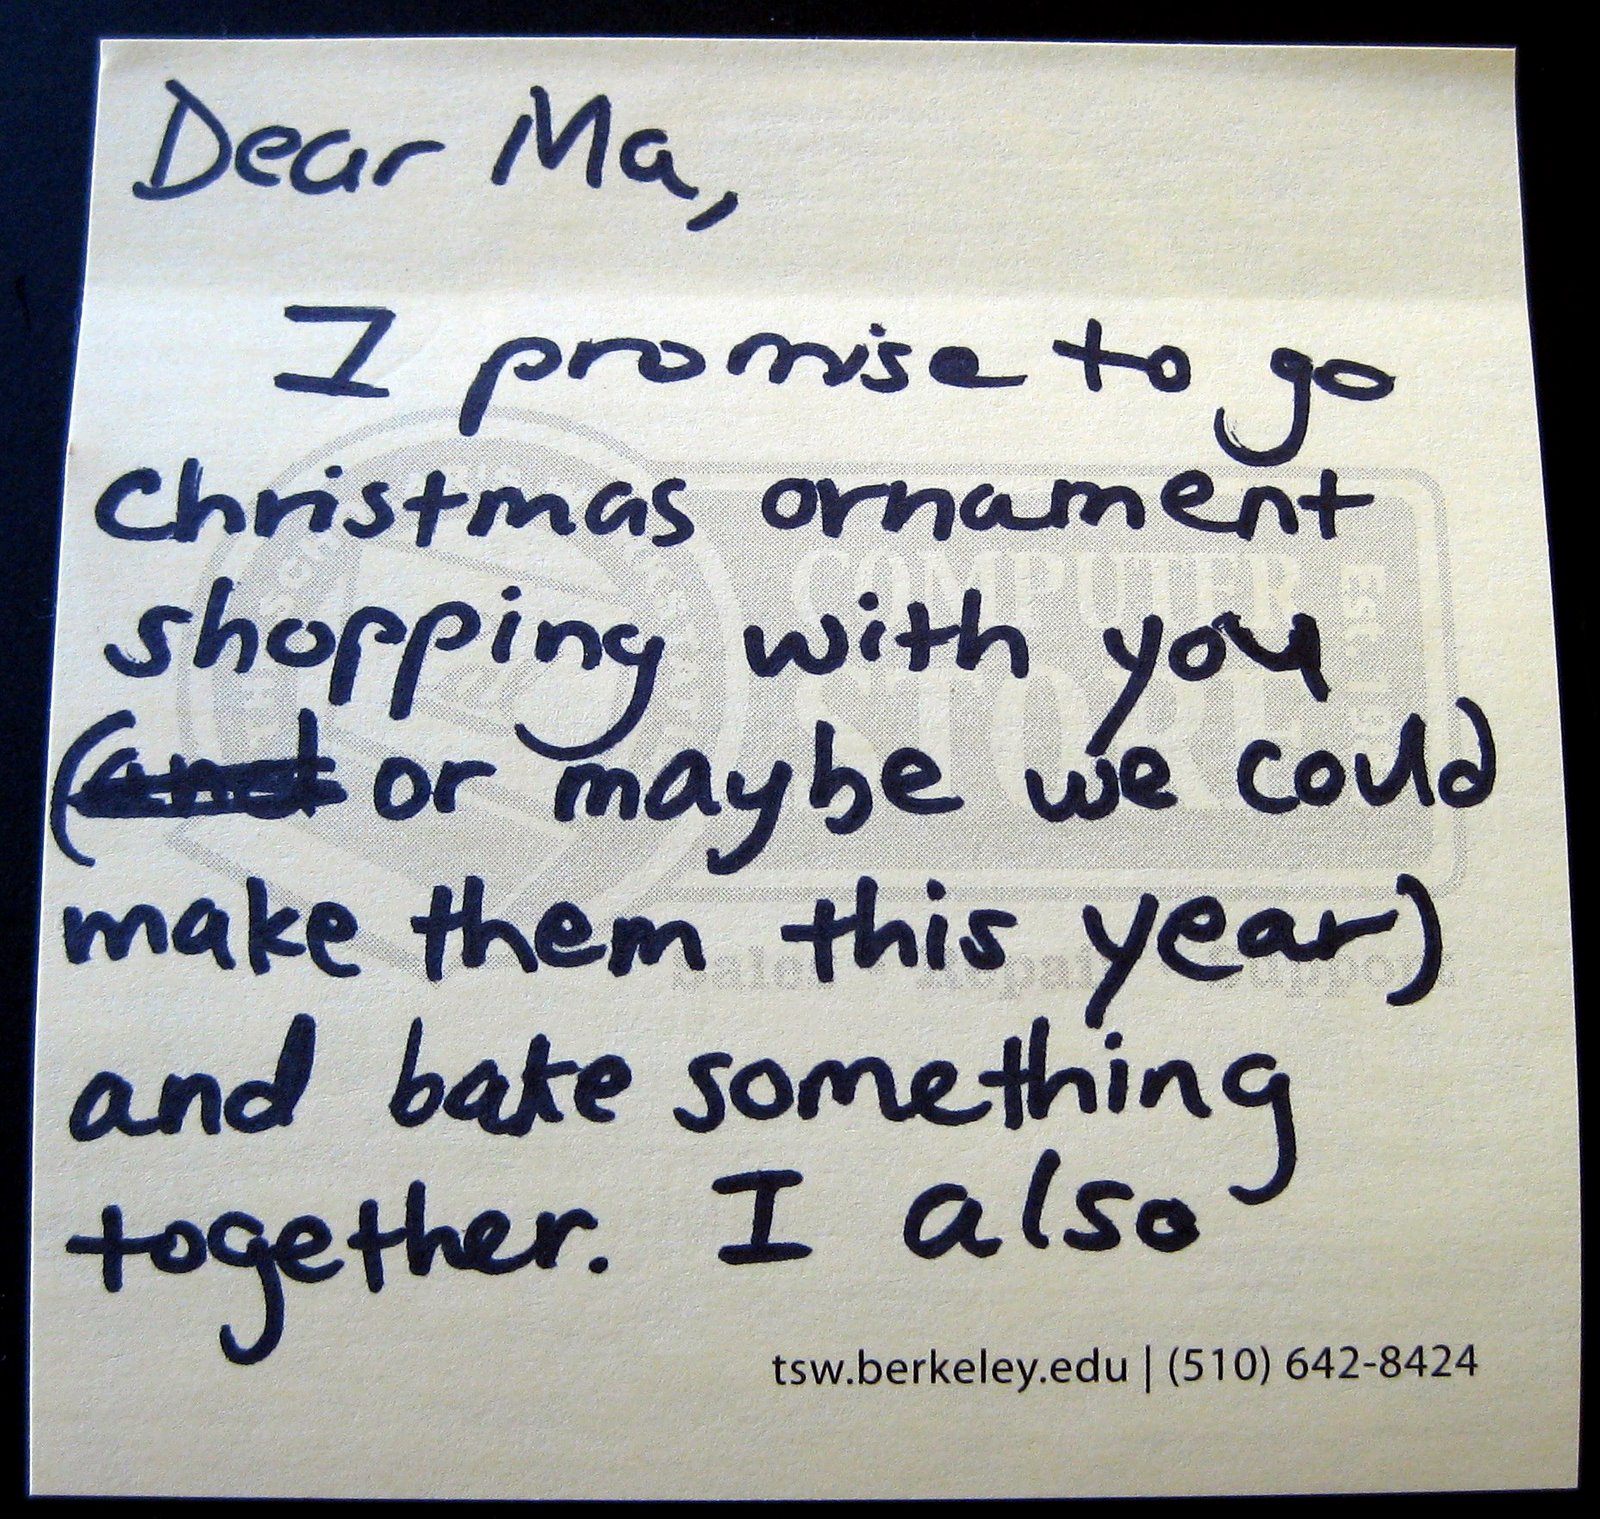 Dear Ma,
I promise to go
Christmas ornament
shopping with you
(and or maybe we could
make them this year)
and bake something
together. I also
COMPUTER
STORE
Sales Repair Support
tsw.berkeley.edu | (510) 642-8424